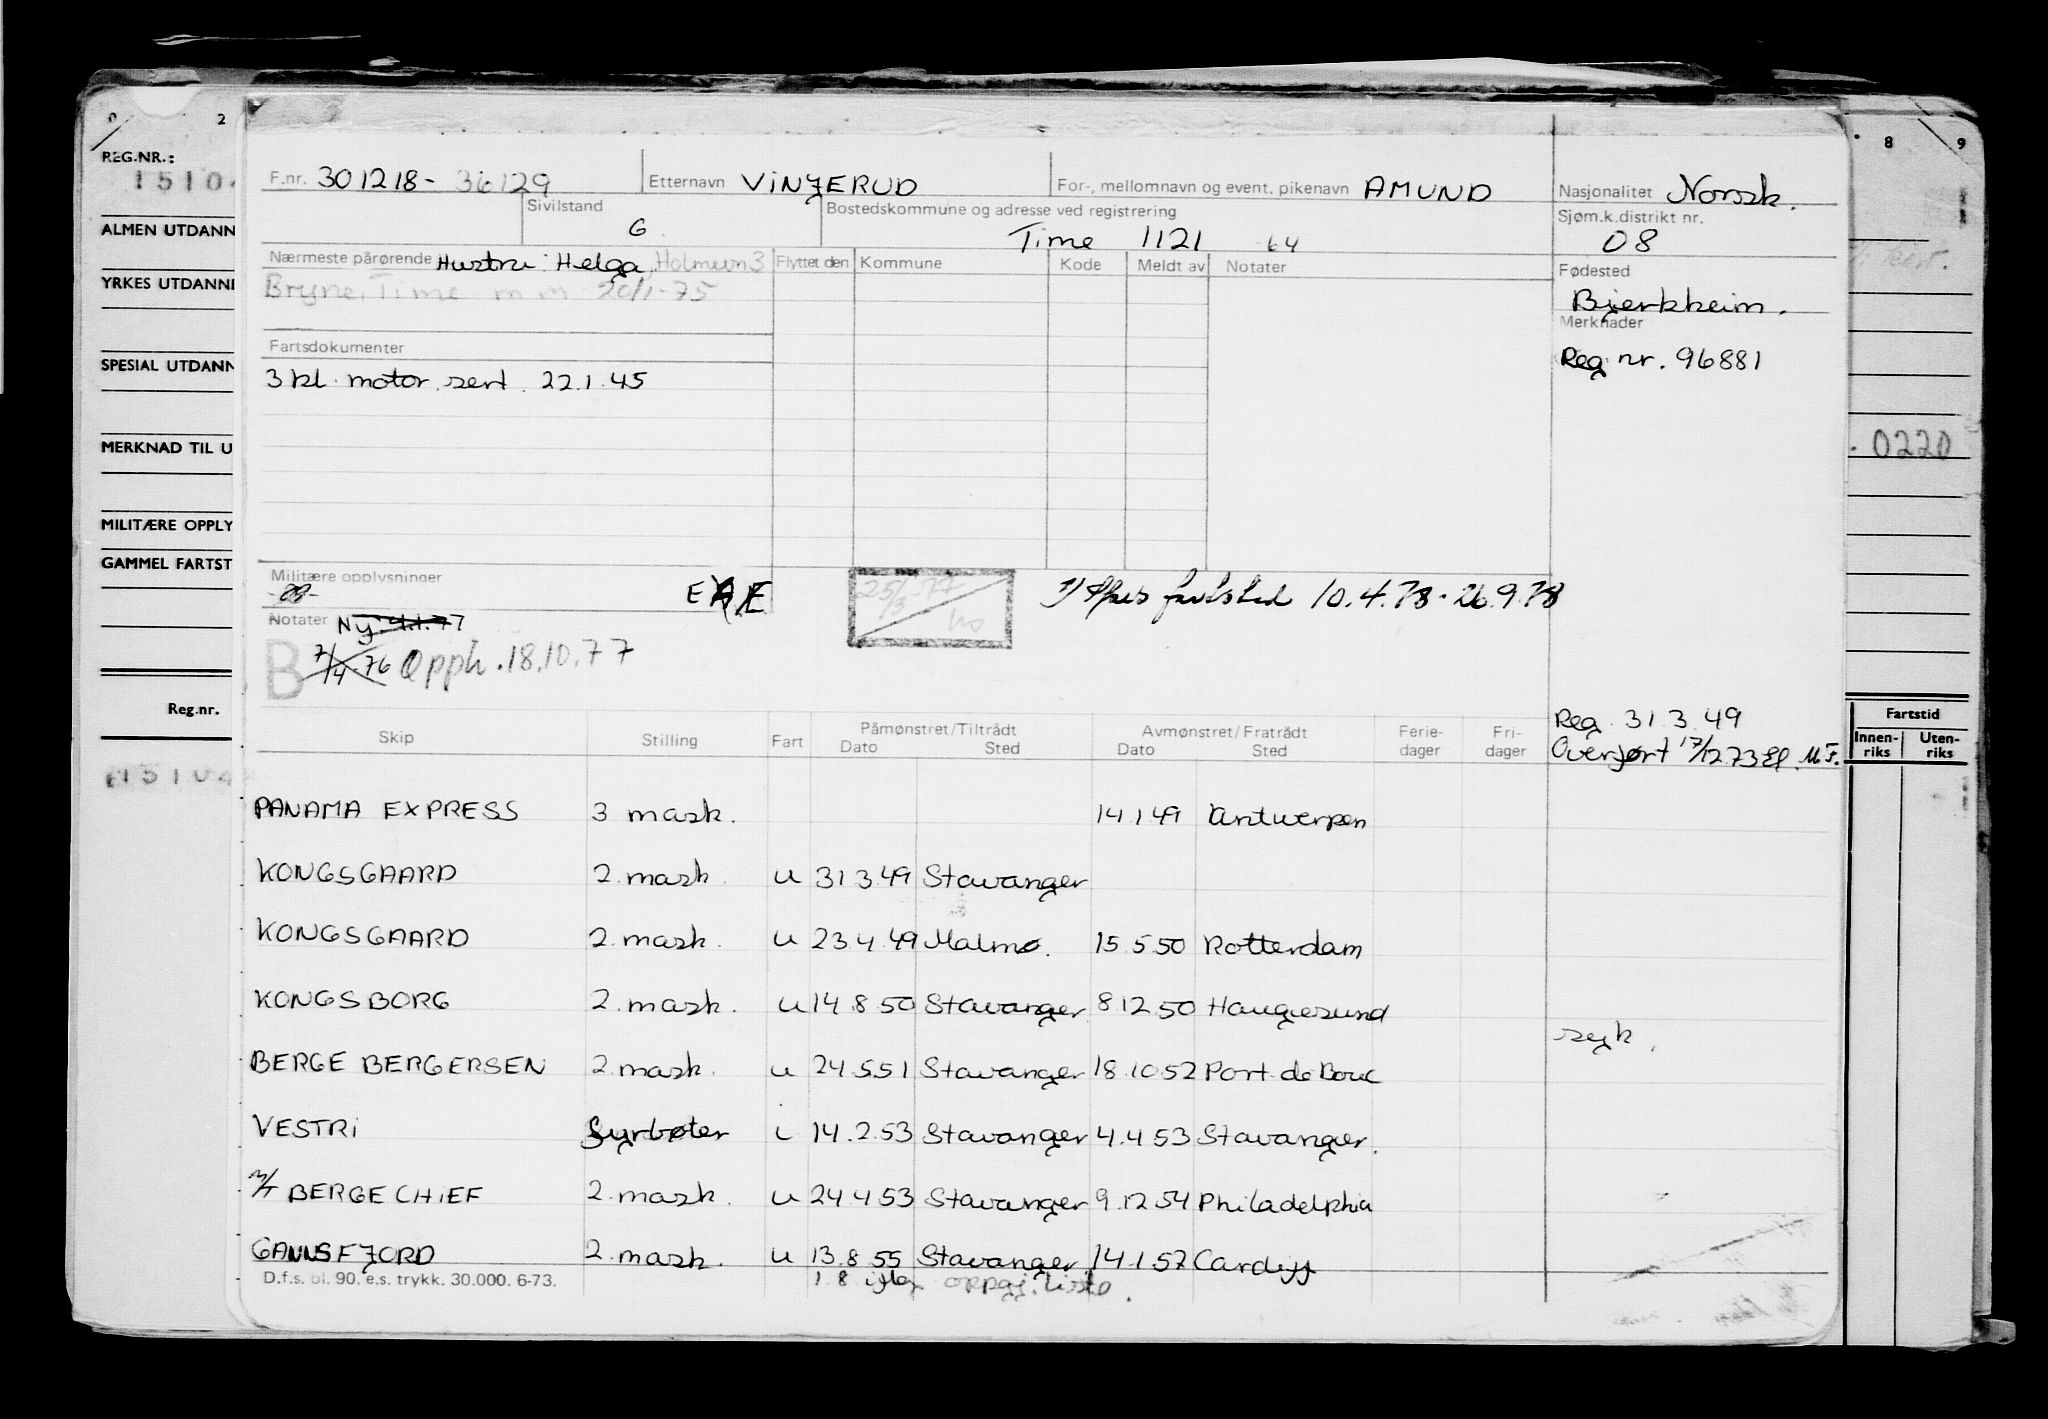 0 2 8 9
REG.NR.:
ALMEN UTDANN
YRKES UTDANNE
SPESIAL UTDANN
MERKNAD TIL U
MILITÆRE OPPLY
GAMMEL FARTST
Reg.nr.
0220
Fartstid
Innen-riks Uten-riks
F.nr. 301218- 36129 Etternavn VINJERUD For-, mellomnavn og event. pikenavn AMUND Nasjonalitet Norsk.
Sivilstand G. Bostedskommune og adresse ved registrering Time 1121 Sjøm.k.distrikt nr. 08
Nærmeste pårørende Hustru: Helga, Holmevn 3 Flyttet den Kommune Kode Meldt av Notater Fødested
Bryne, Time m m 20/1-75 Bjerkheim.
Merknader
Fartsdokumenter Reg nr. 96881
3 kl. motor. sert. 22.1.45
Militære opplysninger
10.4.78 - 26.9.78
25/3-77
Notater Ny 4.1.77
B 7/4.76 Opph. 18.10.77
Reg. 31.3.49
Overført 17/12 73
Skip Stilling Fart Påmønstret/Tiltrådt Dato Sted Avmønstret/Fratrådt Dato Sted Ferie-dager Fri-dager
PANAMA EXPRESS 3 mask. 14.1.49 Antwerpen
KONGSGAARD 2. mask. u 31.3.49 Stavanger
KONGSGAARD 2. mask. u 23.4.49 Malmø. 15.5.50 Rotterdam
KONGSBORG 2. mask. u 14.8.50 Stavanger 8.12.50 Haugesund
syk.
BERGE BERGERSEN 2. mask. u 24.5.51 Stavanger 18.10.52 Port de Bouc
VESTRI fyrbøter i 14.2.53 Stavanger 4.4.53 Stavanger.
M/T BERGECHIEF 2. mask. u 24.4.53 Stavanger 9.12.54 Philadelphia
GANNSFJORD 2. mask. u 13.8.55 Stavanger 14.1.57 Cardiff
D.f.s. bl. 90. e.s. trykk. 30.000. 6-73. 1.8 iflg oppgj. liste.